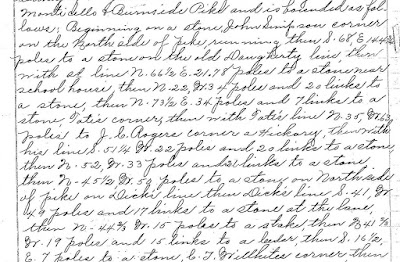 Monticello & Burnside Pike and is bounded as fol-
lows: Beginning on a stone, John Simpson corner
on the North side of pike running then S. 68, E. 144
poles to a stone on the old Daugherty line then
with of line N. 66 1/2 E. 21.78 poles to a stone near
school house, then N. 22, W. 34 poles and 20 links to
a stone, then N. 73 1/2 E. 34 poles and 7 links to a
stone, corner, then with line N. 35, W. 63
poles to J. C. Rogers corner a Hickory, then with
his line S. 51 1/4 W. 22 poles and 20 links to a stone,
then N. 52, W. 33 poles and 21 links to a stone,
then N. 45 1/2 W. 59 poles to a stone, on North side
of pike on Dicks line then Dicks line S. 41, W.
49 poles and 17 links to a stone at the lane,
then N. 44 3/4 W. 15 poles to a stake, then N 41 1/2
W. 19 poles and 15 links to a then S. 16 1/2,
E. 7 poles to a stone, C. T. corner, then